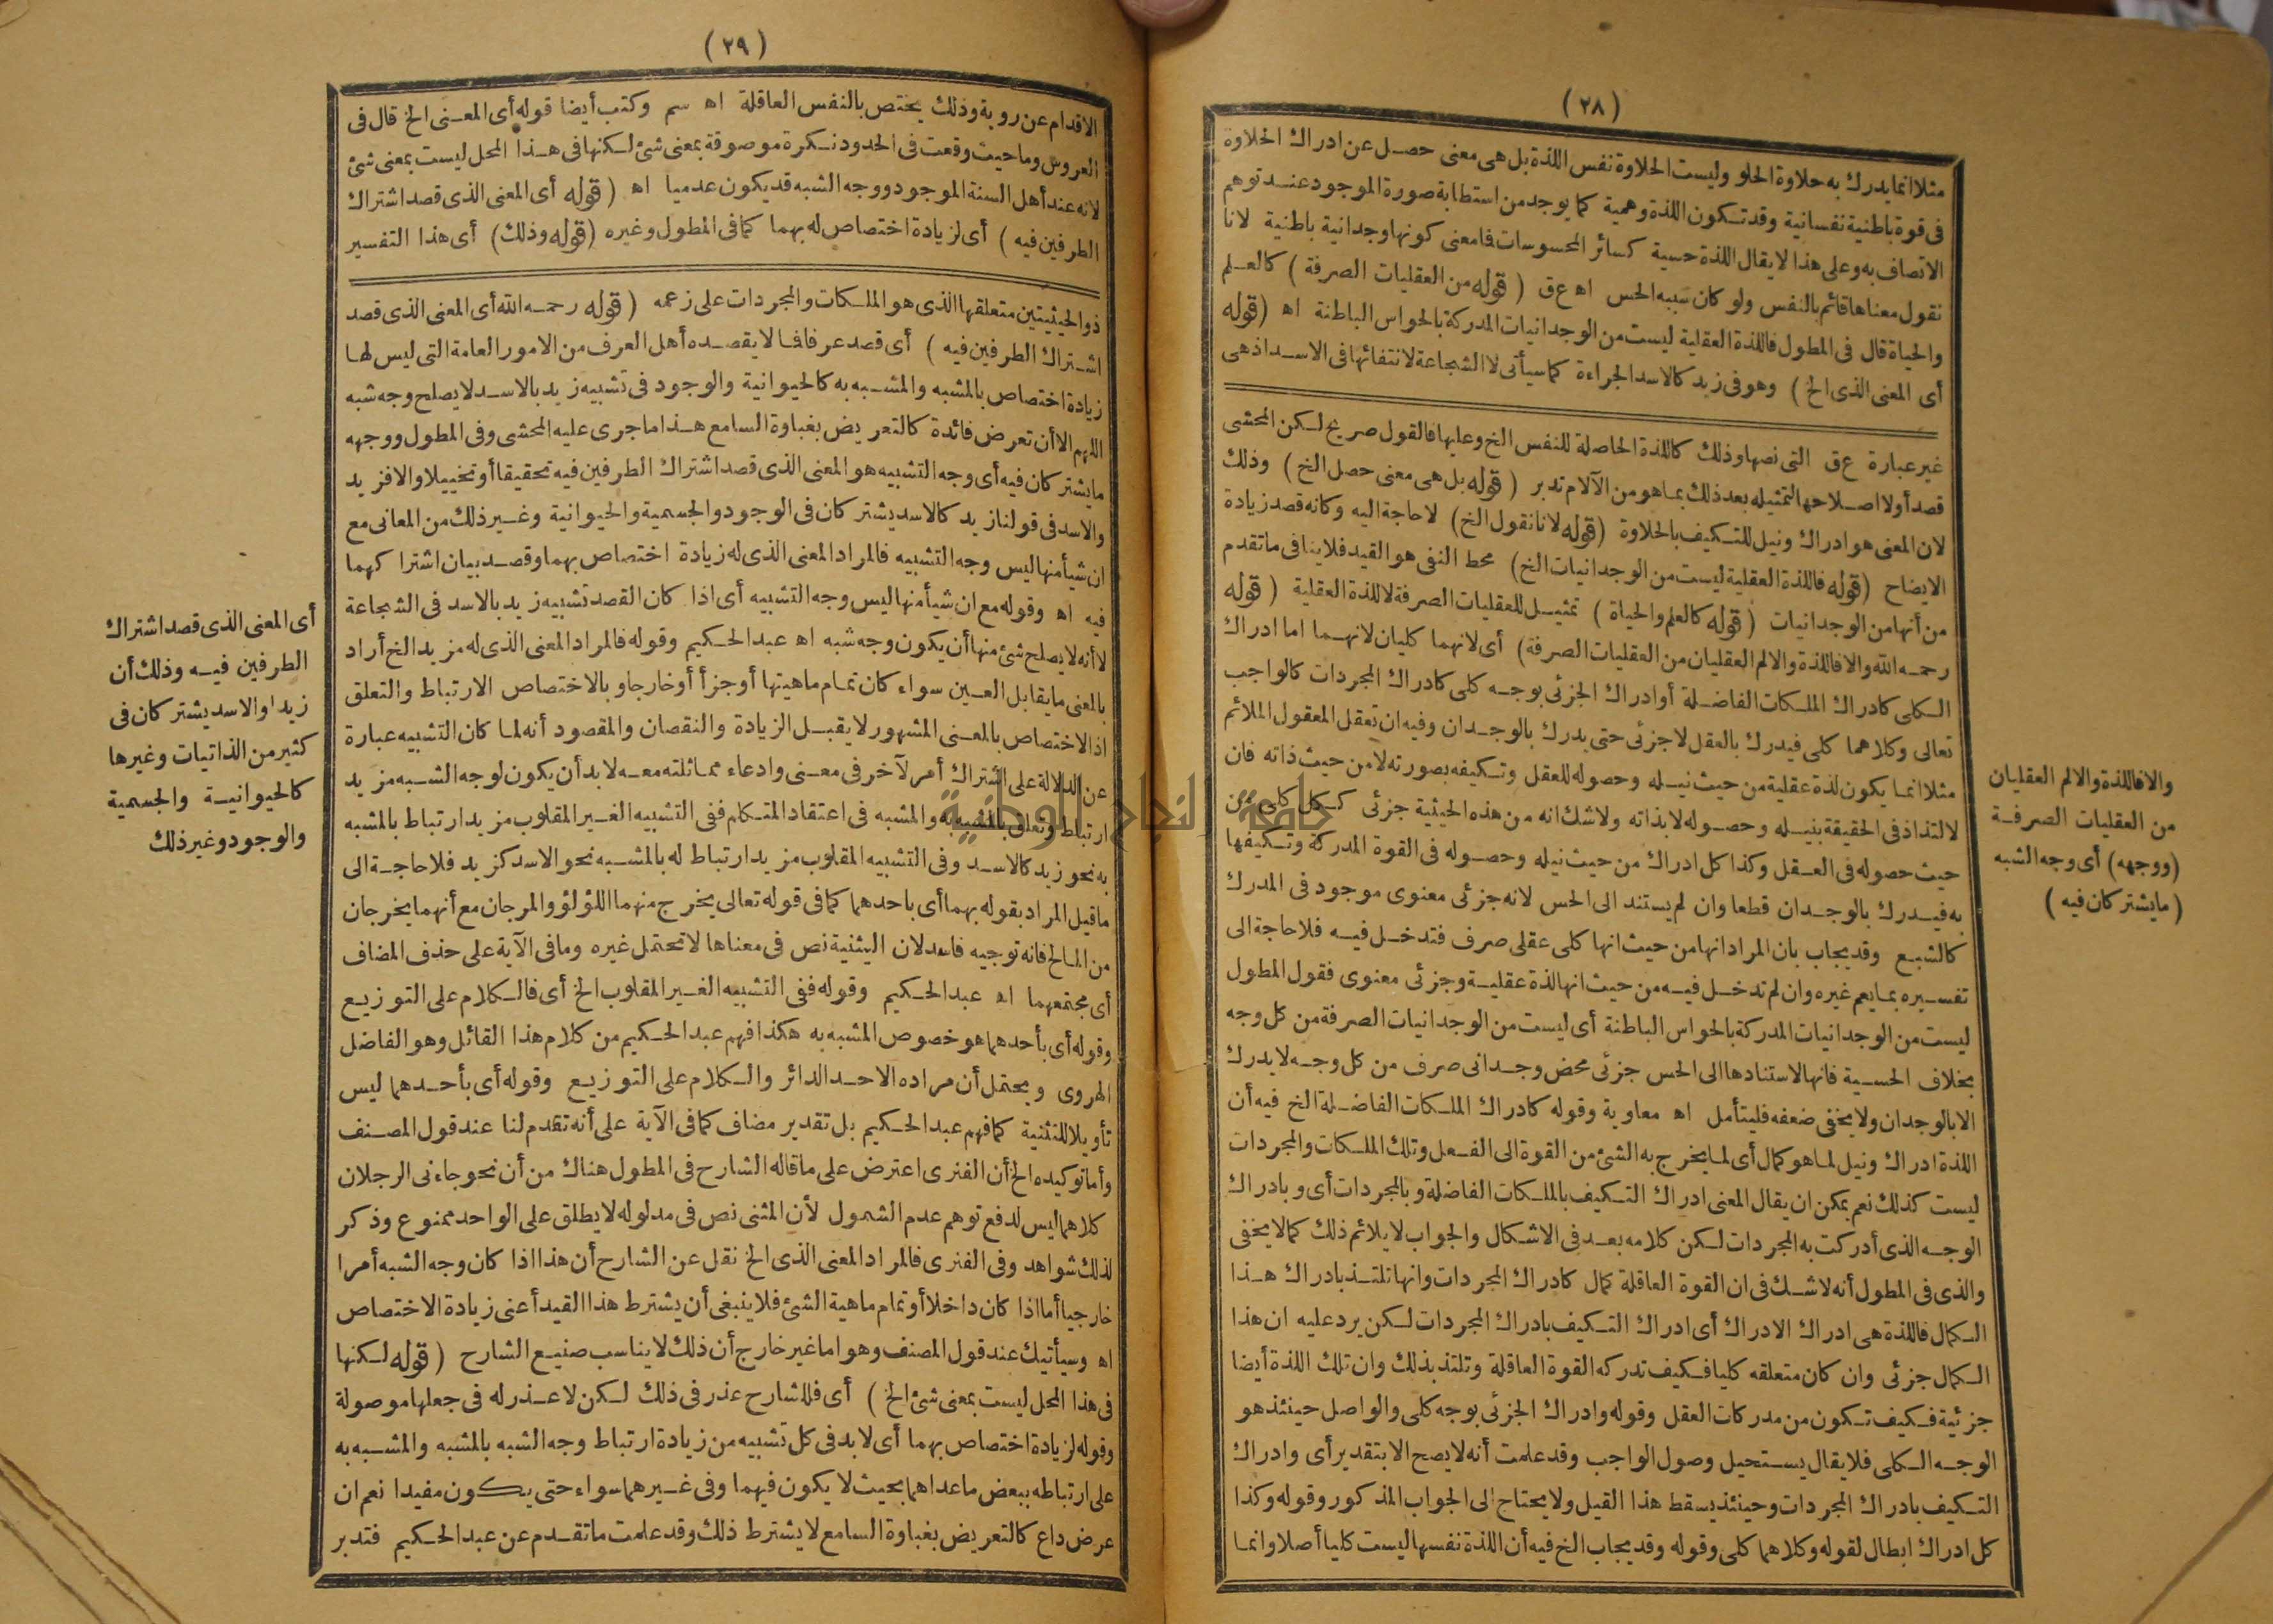 (٢٨)
مثلا انما يدرك به حلاوة الحلو وليست الحلاوة نفس اللذة بل هى معنى حصل عن ادراك الحلاوة
فى قوة باطنية نفسانية وقد تكون اللذة وهمية كما يوجد من استطابة صورة الموجود عند توهم
الاتصاف به وعلى هذا لا يقال اللذة حسية كسائر المحسوسات فما معنى كونها وجدانية باطنية لانا
نقول معناها قائم بالنفس ولو كان سببه الحس اه ع ق (قوله من العقليات الصرفة) كالعلم
والحياة قال فى المطول فاللذة العقلية ليست من الوجدانيات المدركة بالحواس الباطنة اه (قوله
أى المعنى الذى الخ) وهو فى زيد كالاسد الجراءة كما سيأتى لا الشجاعة لانتفائها فى الاسد اذ هى
غير عبارة ع ق التى نصها وذلك كاللذة الحاصلة للنفس الخ وعليها فالقول صريح لكن المحشى
قصد أولا اصلاحها لتمثيله بعد ذلك بما هو من الآلام تدبر (قوله بل هى معنى حصل الخ) وذلك
لان المعنى هو ادراك ونيل للتكيف بالحلاوة (قوله لانا نقول الخ) لا حاجة اليه وكانه قصد زيادة
الايضاح (قوله فاللذة العقلية ليست من الوجدانيات الخ) محط النفى هو القيد فلا ينافى ما تقدم
من أنها من الوجدانيات (قوله كالعلم والحياة) تمثيل للعقليات الصرفة لا للذة العقلية (قوله
رحمه الله والا فاللذة والالم العقليان من العقليات الصرفة) أى لانهما كليان لانهما اما ادراك
الكلى كادراك الملكات الفاضلة أو ادراك الجزئى بوجه كلى كادراك المجردات كالواجب
تعالى وكلاهما كلى فيدرك بالعقل لا جزئى حتى يدرك بالوجدان وفيه ان تعقل المعقول الملائم
مثلا انما يكون لذة عقلية من حيث نيله وحصوله للعقل وتكيفه بصورته لا من حيث ذاته فان
لالتذاذ فى الحقيقة بنيله وحصوله لا بذاته ولا شك انه من هذه الحيثية جزئى ككل كلى من
حيث حصوله فى العقل وكذا كل ادراك من حيث نيله وحصوله فى القوة المدركة وتكيفها
به فيدرك بالوجدان قطعا وان لم يستند الى الحس لانه جزئى معنوى موجود فى المدرك
كالشبع وقد يجاب بان المراد انها من حيث انها كلى عقلى صرف فتدخل فيه فلا حاجة الى
تفسيره بما يعم غيره وان لم تدخل فيه من حيث انها لذة عقلية وجزئى معنوى فقول المطول
ليست من الوجدانيات المدركة بالحواس الباطنة أى ليست من الوجدانيات الصرفة من كل وجه
بخلاف الحسية فانها لاستنادها الى الحس جزئى محض وجدانى صرف من كل وجه لا يدرك
الا بالوجدان ولا يخفى ضعفه فليتأمل اه معاوية وقوله كادراك الملكات الفاضلة الخ فيه أن
اللذة ادراك ونيل لما هو كمال أى لما يخرج به الشئ من القوة الى الفعل وتلك الملكات والمجردات
ليست كذلك نعم يمكن ان يقال المعنى ادراك التكيف بالملكات الفاضلة وبالمجردات أى وبادراك
الوجه الذى أدركت به المجردات لكن كلامه بعد فى الاشكال والجواب لا يلائم ذلك كما لا يخفى
والذى فى المطول أنه لا شك فى ان القوة العاقلة كمال كادراك المجردات وانها تلتذ بادراك هذا
الكمال فاللذة هى ادراك الادراك أى ادراك التكيف بادراك المجردات لكن يرد عليه ان هذا
الكمال جزئى وان كان متعلقه كليا فكيف تدركه القوة العاقلة وتلتذ بذلك وان تلك اللذة أيضا
جزئية فكيف تكون من مدركات العقل وقوله وادراك الجزئى بوجه كلى والواصل حينئذ هو
الوجه الكلى فلا يقال يستحيل وصول الواجب وقد علمت أنه لا يصح الا بتقدير أى وادراك
التكيف بادراك المجردات وحينئذ يسقط هذا القيل ولا يحتاج الى الجواب المذكور وقوله وكذا
كل ادراك ابطال لقوله وكلاهما كلى وقوله وقد يجاب الخ فيه أن اللذة نفسها ليست كليا أصلا وانما
والا فاللذة والالم العقليان
من العقليات الصرفة
(ووجهه) أى وجه الشبه
(ما يشتركان فيه)
(٢٩)
الاقدام عن روية وذلك يختص بالنفس العاقلة اه سم وكتب أيضا قوله أى المعنى الخ قال فى
العروس وما حيث وقعت فى الحدود نكرة موصوفة بمعنى شئ لكنها فى هذا المحل ليست بمعنى شئ
لانه عند أهل السنة الموجود ووجه الشبه قد يكون عدميا اه (قوله أى المعنى الذى قصد اشتراك
الطرفين فيه) أى لزيادة اختصاص له بهما كما فى المطول وغيره (قوله وذلك) أى هذا التفسير
ذو الحيثيتين متعلقها الذى هو الملكات والمجردات على زعمه (قوله رحمه الله أى المعنى الذى قصد
اشتراك الطرفين فيه) أى قصد عرفا فما لا يقصده أهل العرف من الامور العامة التى ليس لها
زيادة اختصاص بالمشبه والمشبه به كالحيوانية والوجود فى تشبيه زيد بالاسد لا يصلح وجه شبه
اللهم الا أن تعرض فائدة كالتعريض بغباوة السامع هذا ما جرى عليه المحشى وفى المطول ووجهه
ما يشتركان فيه أى وجه التشبيه هو المعنى الذى قصد اشتراك الطرفين فيه تحقيقا أو تخييلا والا فزيد
والاسد فى قولنا زيد كالاسد يشتركان فى الوجود والجسمية والحيوانية وغير ذلك من المعانى مع
ان شيأ منها ليس وجه التشبيه فالمراد المعنى الذى له زيادة اختصاص بهما وقصد بيان اشتراكهما
فيه اه وقوله مع ان شيأ منها ليس وجه التشبيه أى اذا كان القصد تشبيه زيد بالاسد فى الشجاعة
لا أنه لا يصلح شئ منها أن يكون وجه شبه اه عبد الحكيم وقوله فالمراد المعنى الذى له مزيد الخ أراد
بالمعنى ما يقابل العين سواء كان تمام ماهيتها أو جزأ أو خارجا وبالاختصاص الارتباط والتعلق
اذ الاختصاص بالمعنى المشهور لا يقبل الزيادة والنقصان والمقصود أنه لما كان التشبيه عبارة
عن الدلالة على اشتراك أمر لآخر فى معنى وادعاء مماثلته معه لا بد أن يكون لوجه الشبه مزيد
ارتباط وتعلق بالمشبه به والمشبه فى اعتقاد المتكلم ففى التشبيه الغير المقلوب مزيد ارتباط بالمشبه
به نحو زيد كالاسد وفى التشبيه المقلوب مزيد ارتباط له بالمشبه نحو الاسد كزيد فلا حاجة الى
ما قيل المراد بقوله بهما أى باحدهما كما فى قوله تعالى يخرج منهما اللؤلؤ والمرجان مع أنهما يخرجان
من المالح فانه توجيه فاسد لان التثنية نص فى معناها لا تحتمل غيره وما فى الآية على حذف المضاف
أى مجتمعهما اه عبد الحكيم وقوله ففى التشبيه الغير المقلوب الخ أى فالكلام على التوزيع
وقوله أى بأحدهما هو خصوص المشبه به هكذا فهم عبد الحكيم من كلام هذا القائل وهو الفاضل
الهروى ويحتمل أن مراده الاحد الدائر والكلام على التوزيع وقوله أى بأحدهما ليس
تأويلا للتثنية كما فهم عبد الحكيم بل تقدير مضاف كما فى الآية على أنه تقدم لنا عند قول المصنف
وأما توكيده الخ أن الفنرى اعترض على ما قاله الشارح فى المطول هناك من أن نحو جاءنى الرجلان
كلاهما ليس لدفع توهم عدم الشمول لأن المثنى نص فى مدلوله لا يطلق على الواحد ممنوع وذكر
لذلك شواهد وفى الفنرى فالمراد المعنى الذى الخ نقل عن الشارح أن هذا اذا كان وجه الشبه أمرا
خارجيا أما اذا كان داخلا أو تمام ماهية الشئ فلا ينبغى أن يشترط هذا القيد أعنى زيادة الاختصاص
اه وسيأتيك عند قول المصنف وهو اما غير خارج أن ذلك لا يناسب صنيع الشارح (قوله لكنها
فى هذا المحل ليست بمعنى شئ الخ) أى فللشارح عذر فى ذلك لكن لا عذر له فى جعلها موصولة
وقوله لزيادة اختصاص بهما أى لا بد فى كل تشبيه من زيادة ارتباط وجه الشبه بالمشبه والمشبه به
على ارتباطه ببعض ما عداهما بحيث لا يكون فيهما وفى غيرهما سواء حتى يكون مفيدا نعم ان
عرض داع كالتعريض بغباوة السامع لا يشترط ذلك وقد علمت ما تقدم عن عبد الحكيم فتدبر
أى المعنى الذى قصد اشتراك
الطرفين فيه وذلك أن
زيدا والاسد يشتركان فى
كثير من الذاتيات وغيرها
كالحيوانية والجسمية
والوجود وغير ذلك
جامعة النجاح الوطنية